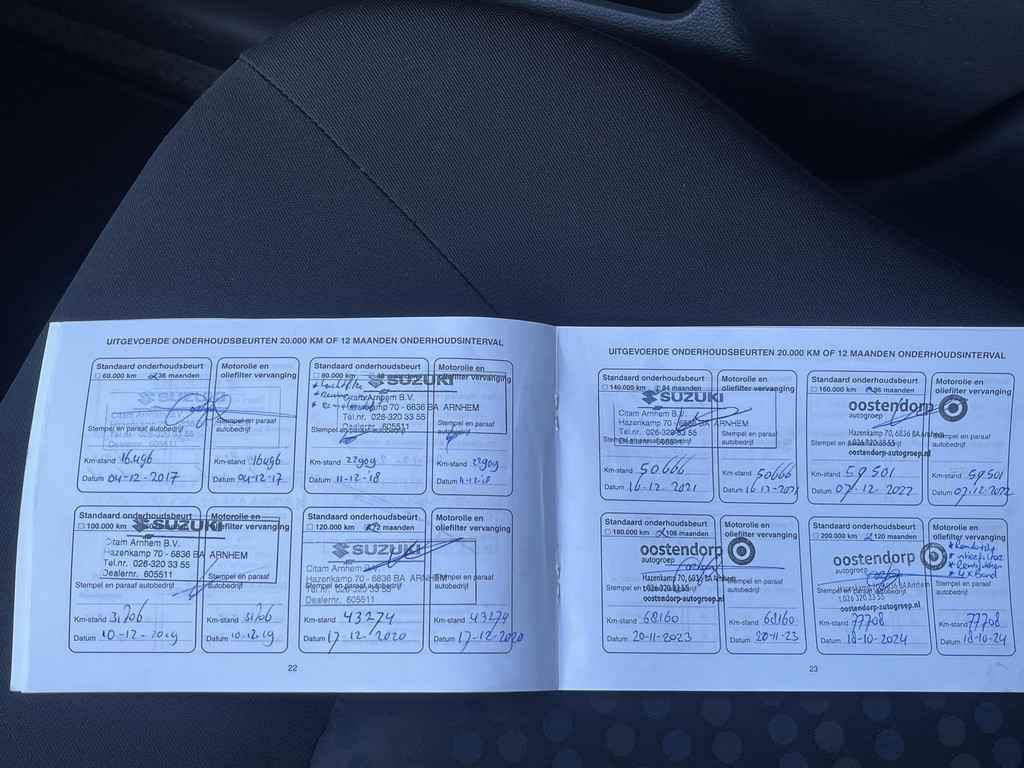 UITGEVOERDE ONDERHOUDSBEURTEN 20.000 KM OF 12 MAANDEN ONDERHOUDSINTERVAL
Standaard onderhoudsbeurt
60.000 km 36 maanden
Stempel en paraaf autobedrijf
Km-stand 16496
Datum 04-12-2017
Motorolie en
oliefilter vervanging
Stempel en paraaf
autobedrijf
Km-stand 16496
Datum 04-12-17
Standaard onderhoudsbeurt
80.000 km
SUZUKI
Citam Arnhem B.V.
Hazenkamp 70 - 6836 BA ARNHEM
Tel.nr. 026-320 33 55
Dealernr. 605511
Stempel en paraaf autobedrijf
Km-stand 22909
Datum 11-12-18
Motorolie en
oliefilter vervanging
Stempel en paraaf
Km-stand 22909
Datum 11-12-18
Standaard onderhoudsbeurt
100.000 km
SUZUKI
Citam Arnhem B.V.
Hazenkamp 70 - 6836 BA ARNHEM
Tel.nr. 026-320 33 55
Dealernr. 605511
Stempel en paraaf autobedrijf
Km-stand 31706
Datum 10-12-2019
Motorolie en
oliefilter vervanging
Stempel en paraaf
autobedrijf
Km-stand 31706
Datum 10-12-19
Standaard onderhoudsbeurt
120.000 km 72 maanden
SUZUKI
Citam Arnhem B.V.
Hazenkamp 70 - 6836 BA ARNHEM
Tel.nr. 026-320 33 55
Dealernr. 605511
Stempel en paraaf autobedrijf
Km-stand 43274
Datum 17-12-2020
Motorolie en
oliefilter vervanging
Stempel en paraaf
autobedrijf
Km-stand 43274
Datum 17-12-2020
22
UITGEVOERDE ONDERHOUDSBEURTEN 20.000 KM OF 12 MAANDEN ONDERHOUDSINTERVAL
Standaard onderhoudsbeurt
140.000 km 84 maanden
SUZUKI
Citam Arnhem B.V.
Hazenkamp 70 - 6836 BA ARNHEM
Tel.nr. 026-320 33 55
Stempel en paraaf autobedrijf
Km-stand 50666
Datum 16-12-2021
Motorolie en
oliefilter vervanging
Stempel en paraaf
autobedrijf
Km-stand 50666
Datum 16-12-2021
Standaard onderhoudsbeurt
160.000 km 96 maanden
oostendorp
autogroep
Hazenkamp 70, 6836 BA Arnhem
t.026 320 33 55
oostendorp-autogroep.nl
Stempel en paraaf autobedrijf
Km-stand 59501
Datum 07-12-2022
Motorolie en
oliefilter vervanging
Stempel en paraaf
autobedrijf
Km-stand 59501
Datum 07-12-2022
Standaard onderhoudsbeurt
180.000 km 108 maanden
oostendorp
autogroep
Hazenkamp 70, 6836 BA
t.026 320 33 55
oostendorp-autogroep.nl
Stempel en paraaf autobedrijf
Km-stand 68160
Datum 20-11-2023
Motorolie en
oliefilter vervanging
Stempel en paraaf
autobedrijf
Km-stand 68160
Datum 20-11-23
Standaard onderhoudsbeurt
200.000 km 120 maanden
oostendorp
autogroep
t.026 320 33 55
oostendorp-autogroep.nl
Stempel en paraaf autobedrijf
Km-stand 77708
Datum 18-10-2024
Motorolie en
oliefilter vervanging
4x Band
Stempel en paraaf
autobedrijf
Km-stand 77708
Datum 18-10-24
23